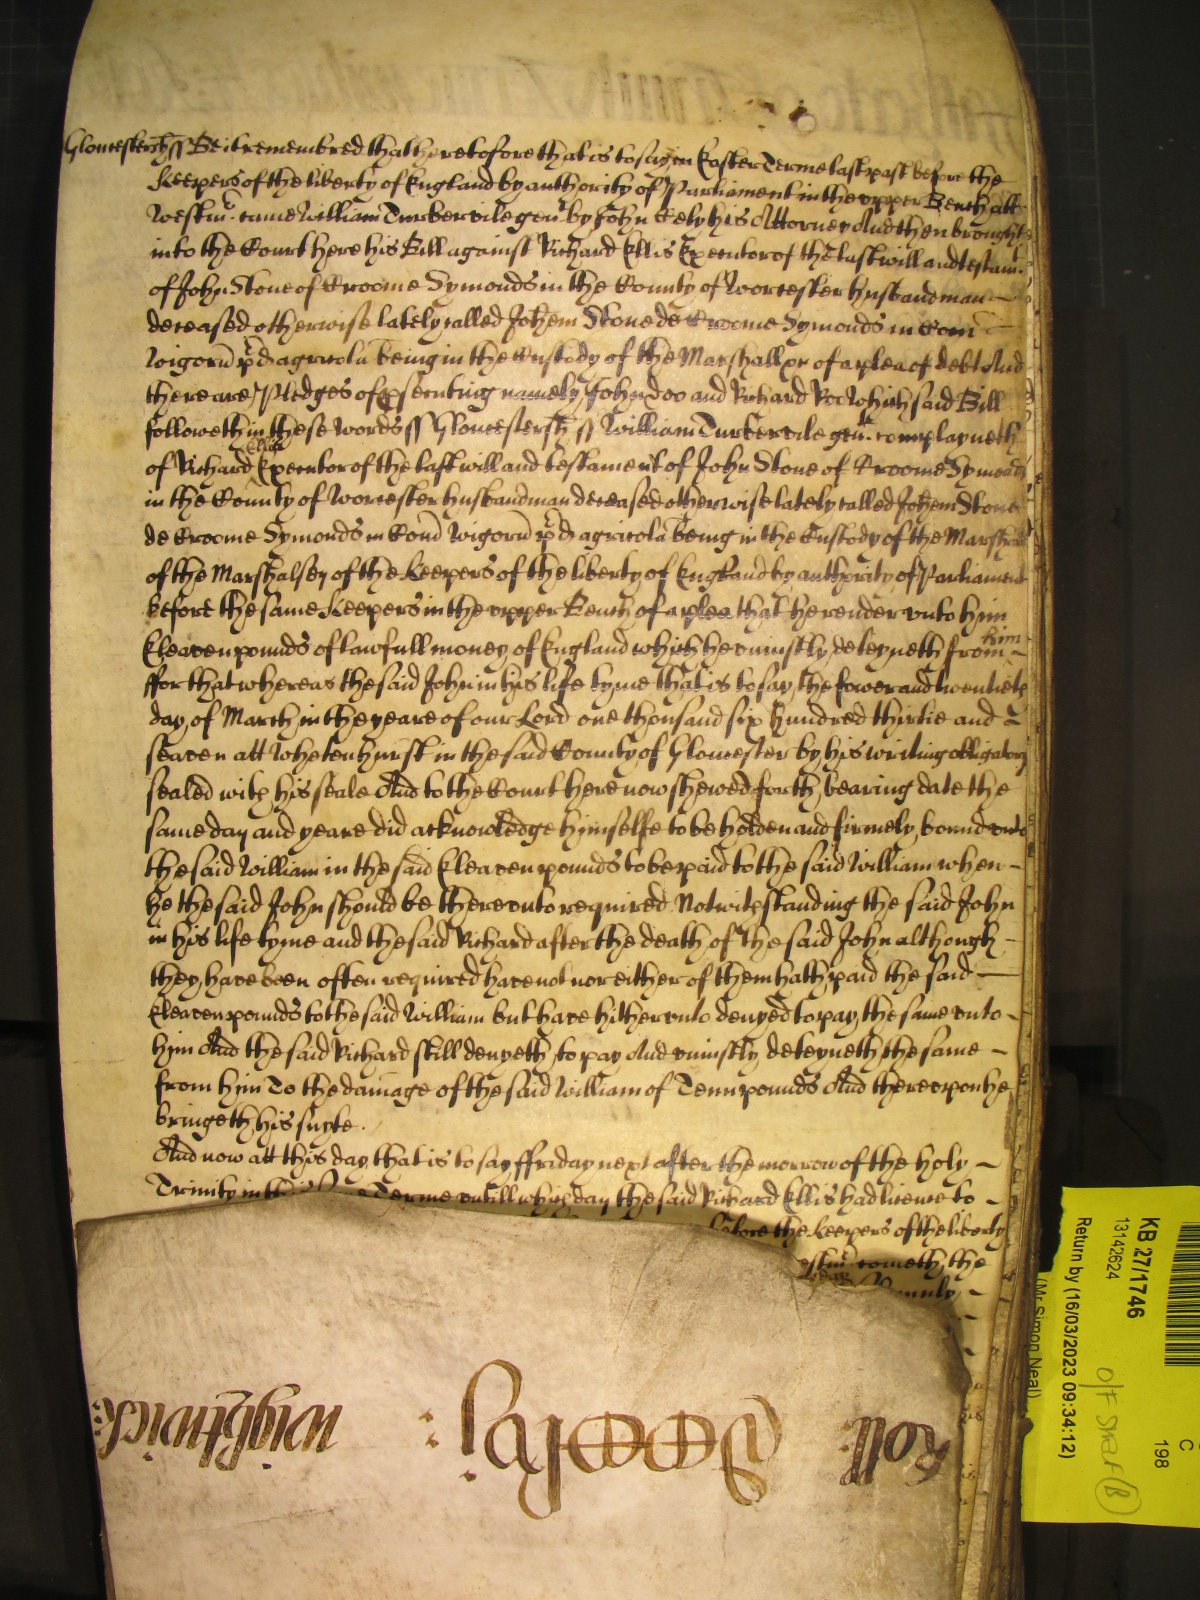 Gloucestersh ss Be it remembred that heretofore that is to say in Easter Terme last past before the
Keepers of the liberty of England by authority of Parliament in the vpper Bench att
Westm̃ came William Turbervile geñ by John Cely his Attorney And then brought
into the Court here his Bill against Richard Ellis Executor of the last will and testam̃t
of John Stone of Croome Symonds in the County of Worcester husbandman
deceased otherwise lately called Johem Stone de Croome Symonds in Com̃
Wigorñ p̱d agricolã being in the Custody of the Marshall &c of a plea of debt And
there are Pledges of p̱secuting namely John Doo and Richard Roo Which said Bill
followeth in these words ss Gloucestersh ss William Turbervile geñ complayneth
of Richard Ellis Executor of the last will and testament of John Stone of Croome Symonds
in the County of Worcester husbandman deceased otherwise lately called Johem Stone
de Croome Symonds in Com̃ Wigorñ p̱d agricolã being in the Custody of the Marshall
of the Marshalsey of the Keepers of the liberty of England by authority of Parliament
before the same Keepers in the vpper Bench of a plea that he render vnto him
Eleaven pounds of lawfull money of England which he viniustly deteyneth from him
ffor that whereas the said John in his life tyme that is to say the fower and twentieth
day of March in the yeare of our Lord one thousand six hundred thirtie and
seaven att Whetenhurst in the said County of Gloucester by his writing obligatory
sealed with his seale And to the Court here now shewed forth bearing date the
same day and yeare did acknowledge himselfe to be holden and firmely bound vnto
the said William in the said Eleaven pounds to be paid to the said William when
he the said John should be therevnto required Notwithstanding the said John
in his life tyme and the said Richard after the death of the said John although
they have been often required have not nor either of them hath paid the said
Eleaven pounds to the said William but have hithervnto denyed to pay the same vnto
him And the said Richard still denyeth to pay And vniustly deteyneth the same
from him To the damage of the said William of Tenn pounds And therevpon he
bringeth his suyte.
And now att this day that is to say ffriday next after the morrow of the holy
Trinity in this Terme vntill which day the said Richard Ellis had licence to
before the Keepers of the liberty
estm̃ cometh the
Wightwick:
Roll:
KB 27/1746
13142624
Return by (16/03/2023 09:34:12)
(Mr Simon Neal)
C
198
O/F Shelf (B)